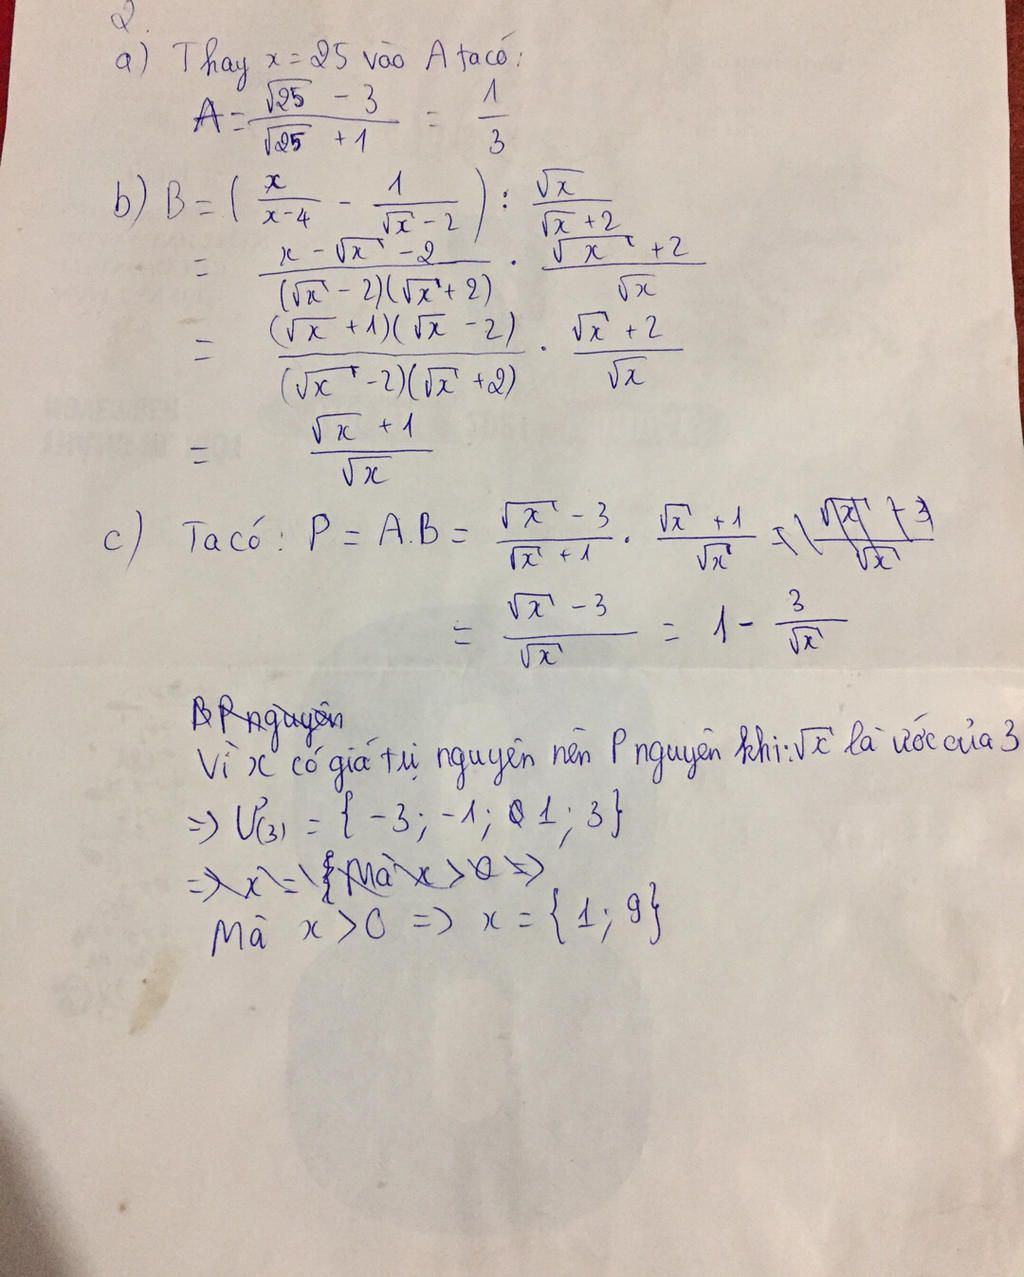 2.
a) Thay x = 25 vào A ta có:
A = (√25 - 3)/(√25 + 1) = 1/3
b) B = (x/(x-4) - 1/(√x - 2)) : √x/(√x + 2)
= (x - √x - 2)/((√x - 2)(√x + 2)) . (√x + 2)/√x
= ((√x + 1)(√x - 2))/((√x - 2)(√x + 2)) . (√x + 2)/√x
= (√x + 1)/√x
c) Ta có: P = A.B = (√x - 3)/(√x + 1) . (√x + 1)/√x =
= (√x - 3)/√x = 1 - 3/√x
P nguyên
Vì x có giá trị nguyên nên P nguyên khi: √x là ước của 3
=> Ư(3) = {-3; -1; 1; 3}
=> x = { Mà x > 0 =>
Mà x > 0 => x = {1; 9}